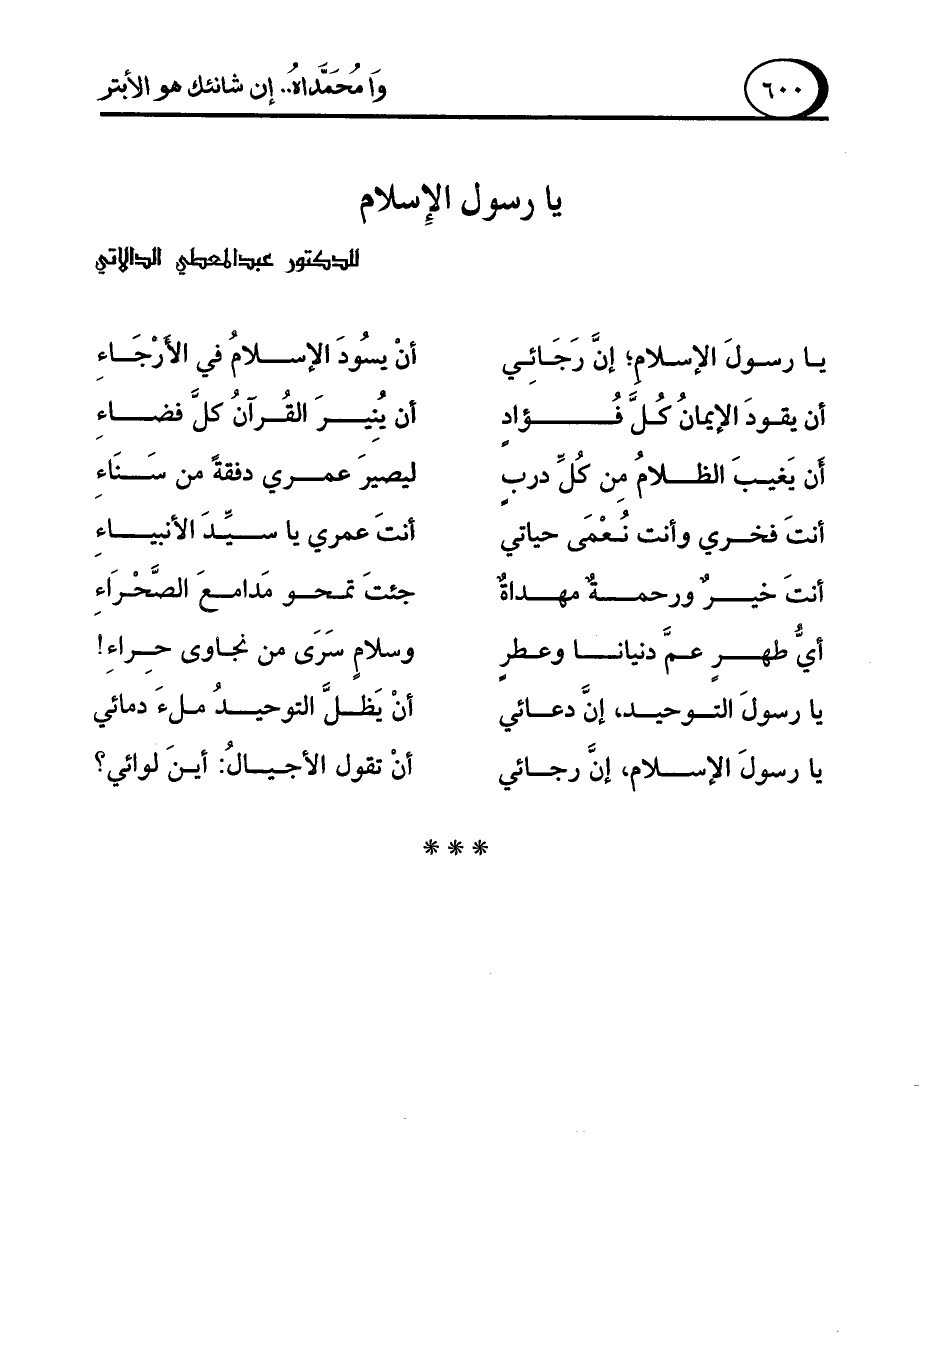 ٦٠٠ وَا مُحَمَّدَاهُ.. إن شانئك هو الأبتر
يا رسول الإِسلام
للدكتور عبدالمعطي الدالاتي
يـا رسـولَ الإسـلامِ؛ إنَّ رَجَـائِـي أنْ يسُودَ الإســلامُ في الأَرْجَـاءِ
أن يقـودَ الإيمانُ كُـلَّ فُــؤادٍ أن يُنِيـرَ القُـرآنُ كلَّ فضـاءِ
أَن يَغيـبَ الظـلامُ مِن كُلِّ دربٍ ليصيرَ عمـري دفقةً من سَـنَاءِ
أنتَ فخـري وأنت نُـعْمَى حياتي أنتَ عمري يا سـيِّـدَ الأنبيـاءِ
أنتَ خيـرٌ ورحمـةٌ مهـداةٌ جئتَ تمحـو مَدامـعَ الصَّحْـرَاءِ
أيُّ طهـرٍ عـمَّ دنيانـا وعـطرٍ وسلامٍ سَرَى من نجـاوى حِـراءِ!
يا رسولَ التـوحيـد، إنَّ دعـائي أنْ يَظـلَّ التوحيـدُ مـلءَ دمائي
يا رسولَ الإسـلام، إنَّ رجـائي أنْ تقول الأجيـالُ: أيـنَ لوائي؟
* * *